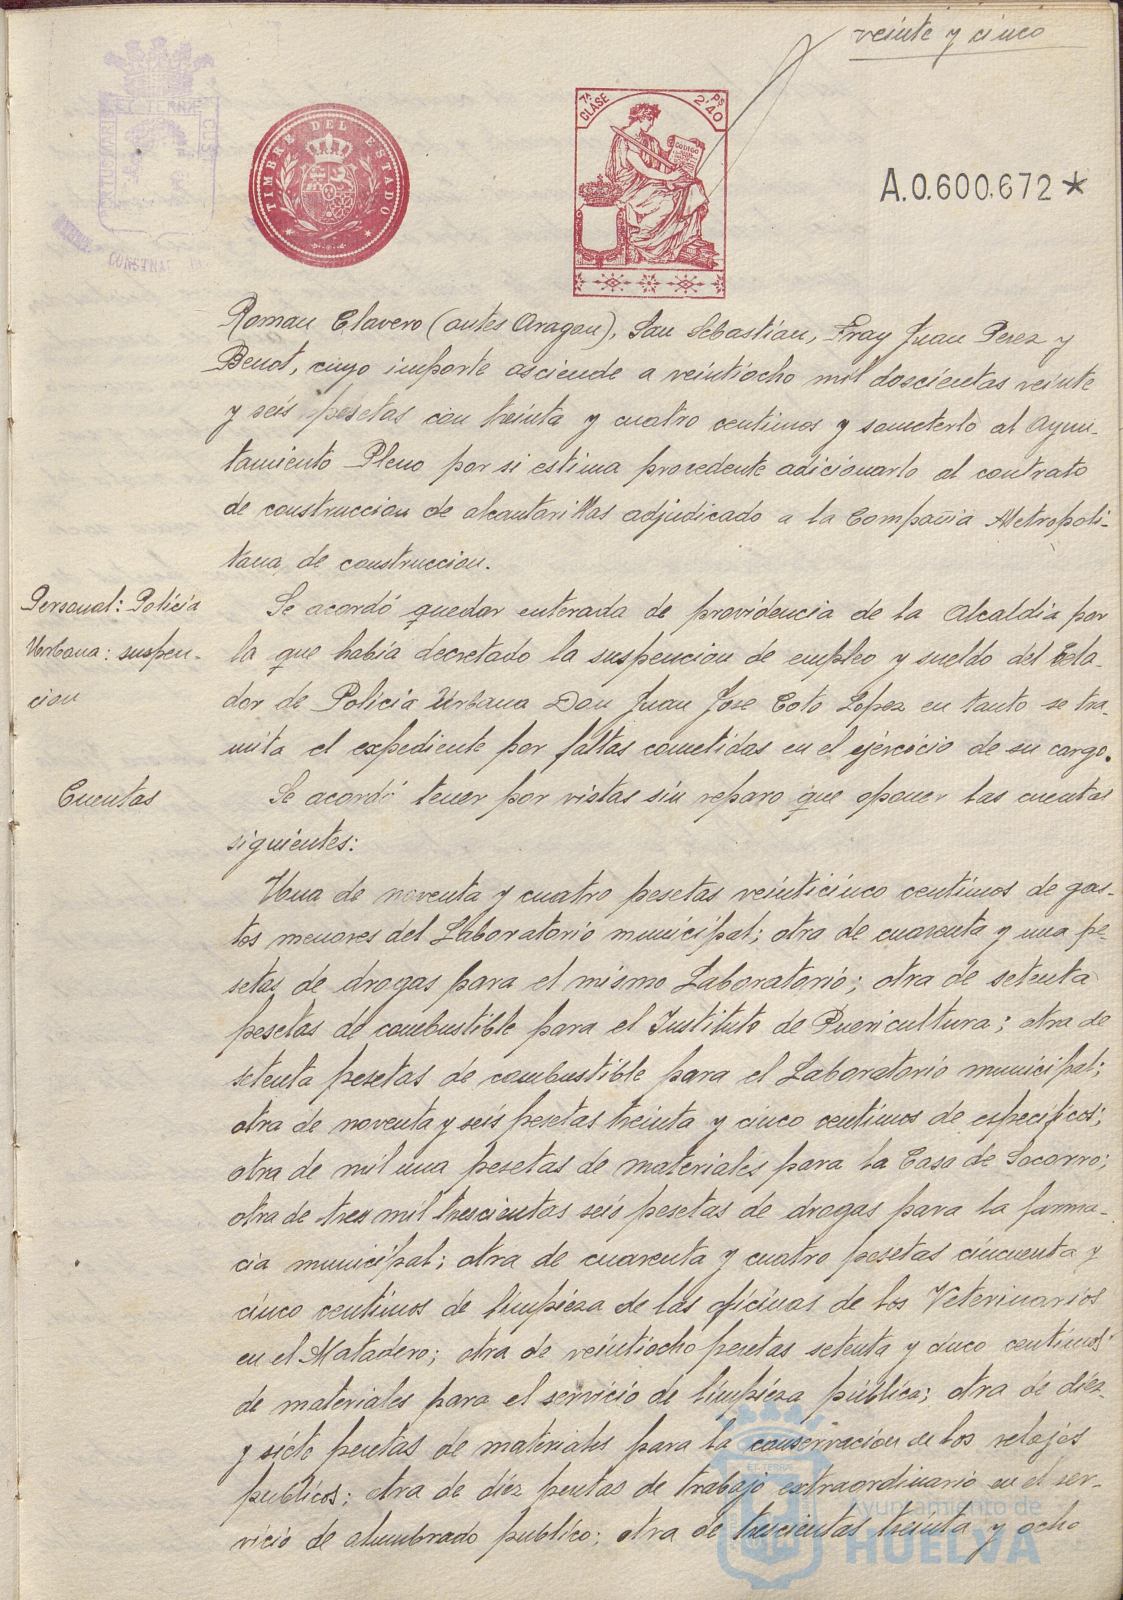 veinte y cinco
TIMBRE DEL ESTADO
7ª CLASE
Ps 2'40
CODIGO
A.0.600.672*
ET TERRÆ
CONSTNE
Roman Clavero (antes Aragon), San Sebastian, Fray Juan Perez y
Benot, cuyo importe asciende a veintiocho mil doscientas veinte
y seis pesetas con treinta y cuatro centimos y someterlo al Ayun-
tamiento Pleno por si estima procedente adicionarlo al contrato
de construccion de alcantarillas adjudicado a la Compañia Metropoli-
tana de construccion.
Personal: Policia
Urbana: suspen-
cion
Se acordó quedar enterada de providencia de la Alcaldia por
la que habia decretado la suspencion de empleo y sueldo del Cela-
dor de Policia Urbana Don Juan Jose Coto Lopez en tanto se tra-
mita el expediente por faltas cometidas en el ejercicio de su cargo.
Cuentas
Se acordó tener por vistas sin reparo que oponer las cuentas
siguientes:
Una de noventa y cuatro pesetas veinticinco centimos de gas-
tos menores del Laboratorio municipal; otra de cuarenta y una pe-
setas de drogas para el mismo Laboratorio; otra de setenta
pesetas de combustible para el Instituto de Puericultura; otra de
setenta pesetas de combustible para el Laboratorio municipal;
otra de noventa y seis pesetas treinta y cinco centimos de especificos;
otra de mil una pesetas de materiales para la Casa de Socorro;
otra de tres mil trescientas seis pesetas de drogas para la farma-
cia municipal; otra de cuarenta y cuatro pesetas cincuenta y
cinco centimos de limpieza de las oficinas de los Veterinarios
en el Matadero; otra de veintiocho pesetas setenta y cinco centimos
de materiales para el servicio de limpieza publica; otra de diez
y siete pesetas de materiales para la conservacion de los relojes
publicos; otra de diez pesetas de trabajo extraordinario en el ser-
vicio de alumbrado publico; otra de trescientas treinta y ocho
Ayuntamiento de
HUELVA